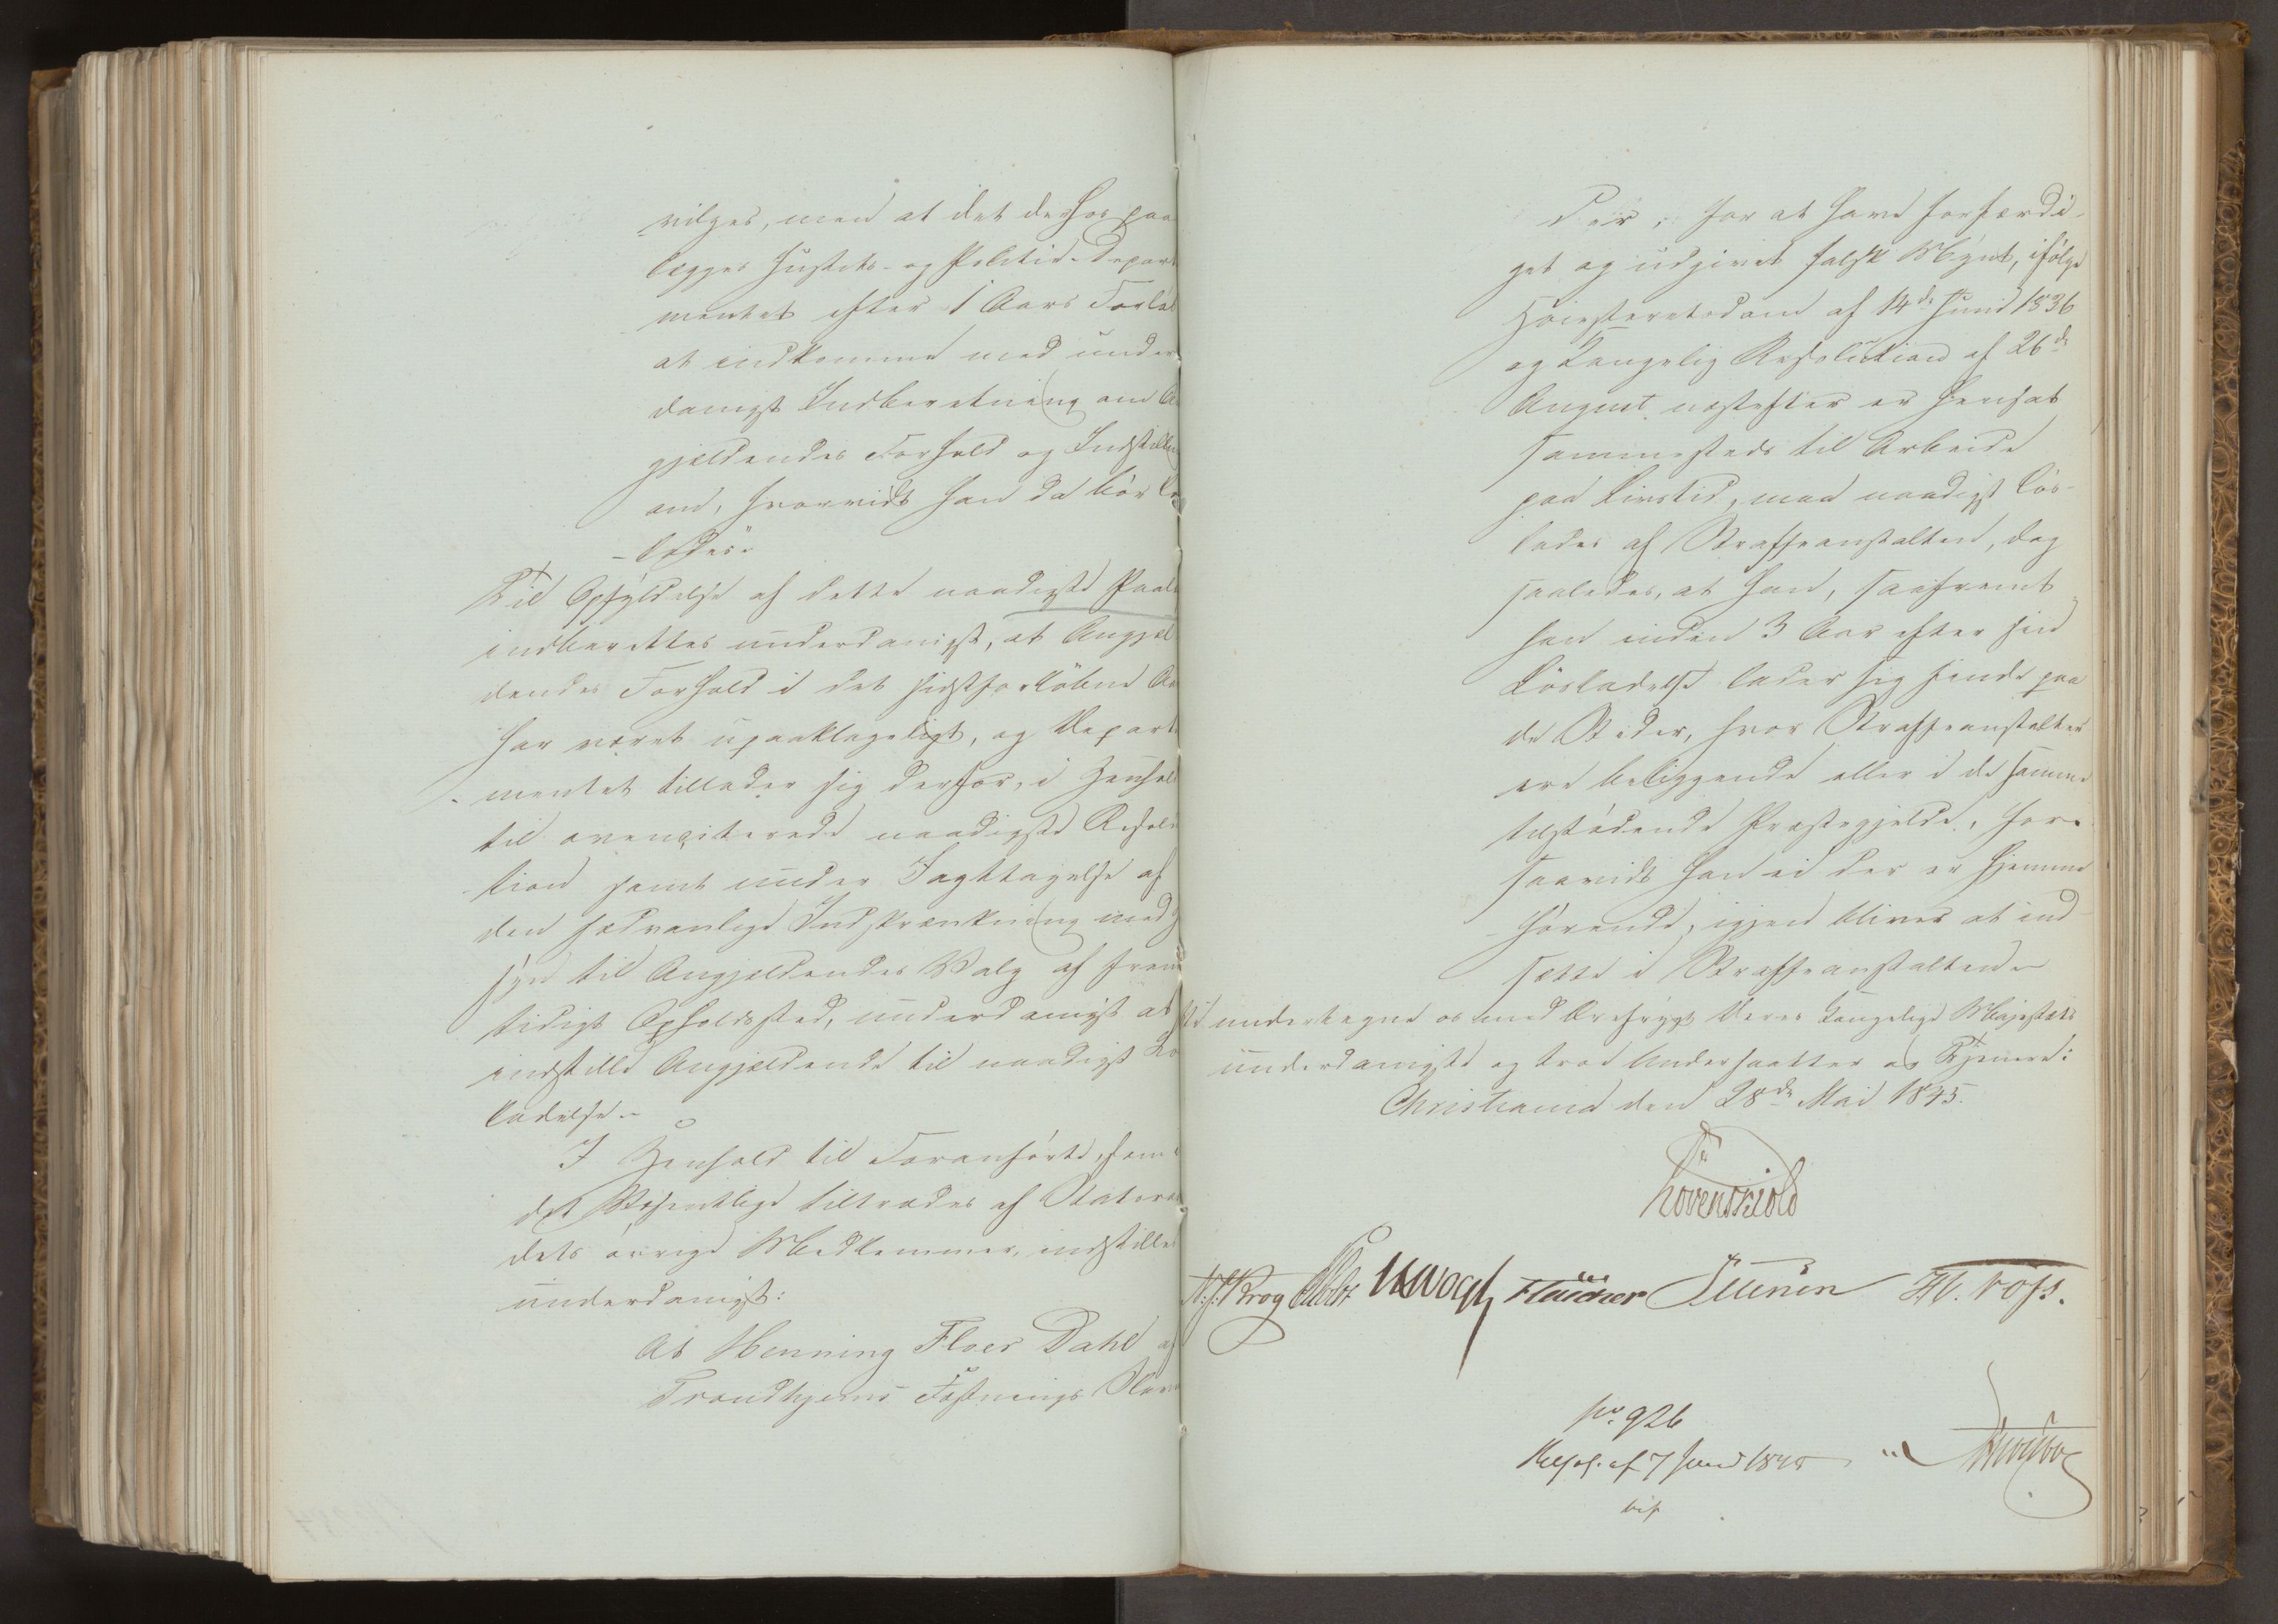 vilges, men at det derhos paa
lægges Justits- og Politie-Depart
mentet efter 1 Aars Forløb
at indkomme med under
danigst Indberetning om An
gjeldendes Forhold og Indstilling
om, hvorvidt han da bør løs
lades".
Til Opfyldelse af dette naadigste Paal
indberettes underdanigst, at Angjel
dendes Forhold i det sidstforløbne Aar
har været upaaklageligt, og Departe
mentet tillader sig derfor, i Henhold
til ovenciterede naadigste Resolu
tion samt under Iagttagelse af
den sædvanlige Indskrænkning med H
syn til Angjeldendes Valg af frem
tidigt Opholdssted, underdanigst at
indstille Angjeldende til naadigst Løs
ladelse.-
I Henhold til Foranførte, som i
det Væsentlige tiltrædes af Statsraa
dets øvrige Medlemmer, indstilles
underdanigst:
At Henning Floer Dahl af
Trondhjems Fæstnings Slave
rie, for at have forfærdi-
get og udgivet falsk Mynt, ifølge
Høiesteretsdom af 14de Juni 1836
og Kongelig Resolution af 26de
August næstefter er hensat
sammesteds til Arbeide
paa Livstid, maa naadigst løs-
lades af Straffeanstalten, dog
saaledes, at han, saafremt
han inden 3 Aar efter sin
Løsladelse lader sig finde paa
de Steder, hvor Straffeanstalter
ere beliggende eller i de samme
tilstødende Præstegjelde, for-
saavidt han ei der er hjemme
hørende, igjen bliver at ind-
sætte i Straffeanstalten.-
undertegne os med Ærefrygt Deres Kongelige Majestæts
underdanigste og troe Undersaatter og Tjenere:
Christiania den 28de Mai 1845.
Løvenskiold
N: J: Krog Holst J.H. Vogt Flüchner Sibbern H. Foss.
No 926
Resol. af 7 Juni 1845